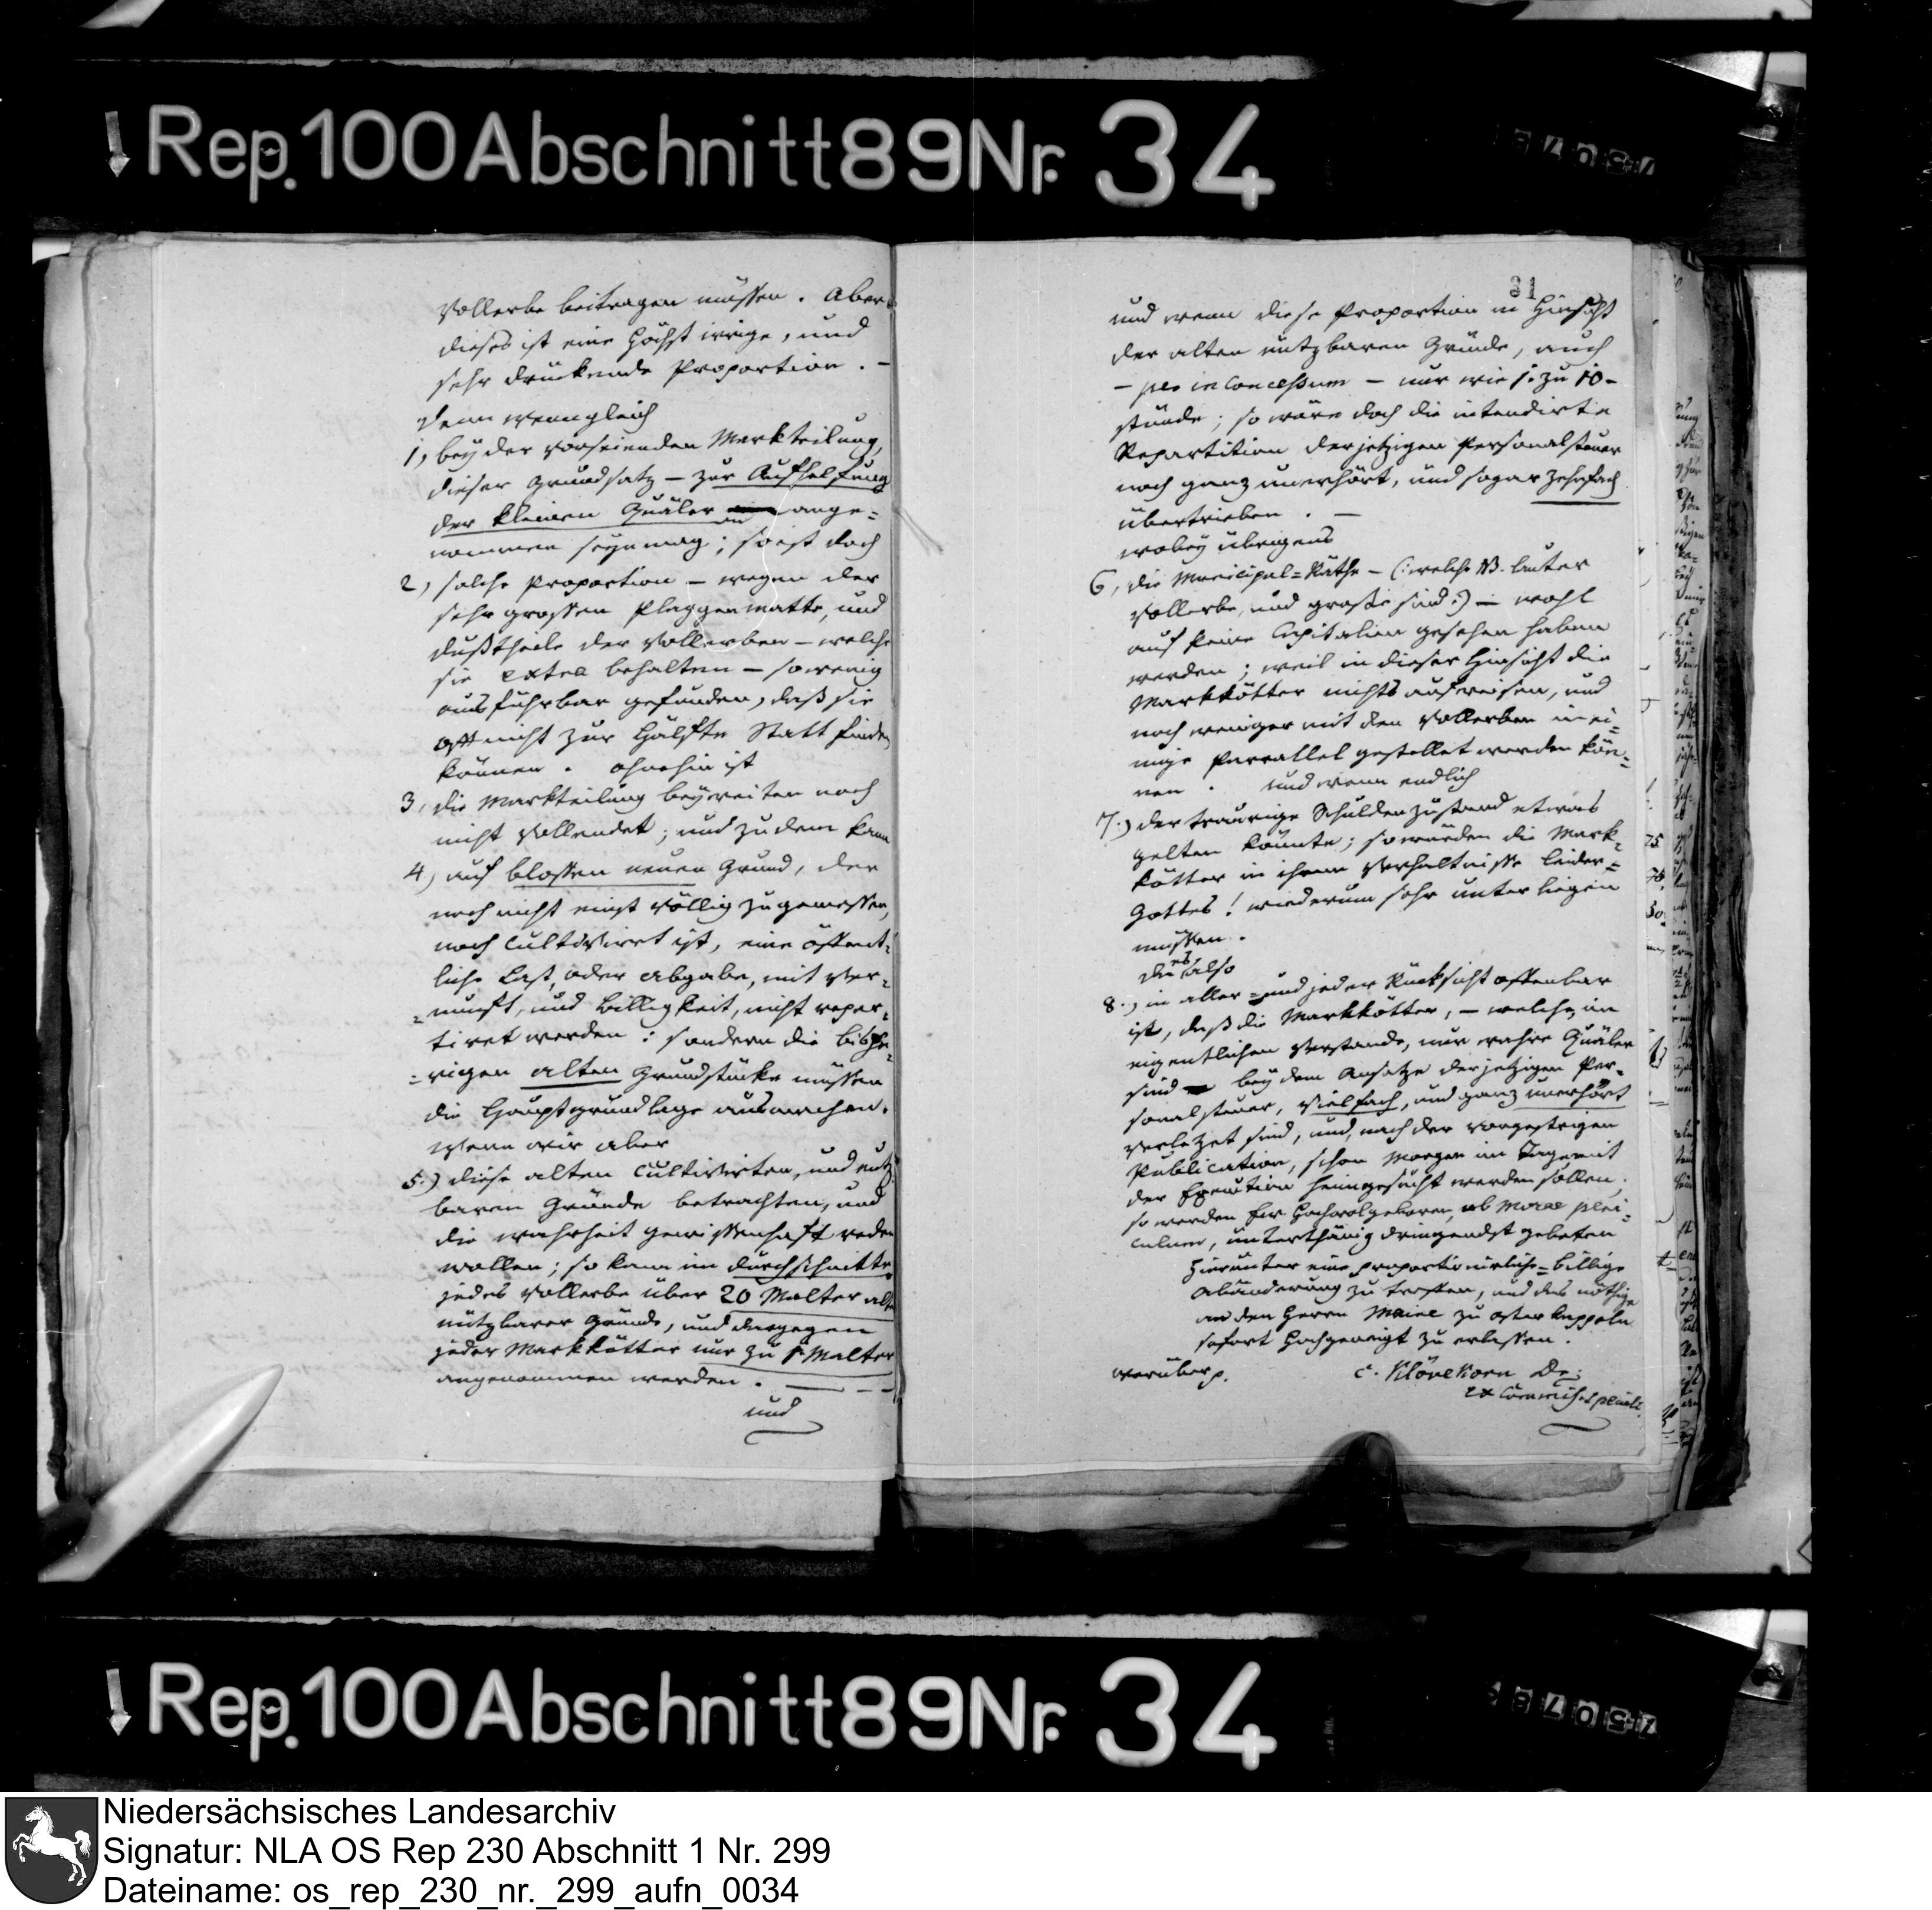 Rep. 100 Abschnitt 89 Nr. 34
Vollerbe beitragen müssen. Aber
dieses ist eine höchst irrige, und
sehr drückende Proportion. –
Denn wenngleich
1, bey der vorseienden Markteilung,
dieser Grundsatz – zur Aufhelfung
der kleinen Quäler ange=
nommen seyn mag; so ist doch
2, solche Proportion – wegen der
sehr grossen Plaggenmatte, und
dußtheile der Vollerben – welche
sie extra behalten – so wenig
ausführbar gefunden, daß sie
oft nicht zur Hälfte Statt finden
können. ohnehin ist
3, die Markteilung beyweiten noch
nicht vollendet; und zudem kann
4, auf blossen neuen Grund, der
noch nicht einst völlig zugemessen,
noch cultiviret ist, eine öffent=
liche Last, oder Abgabe, mit Ver=
=nunft, und Billigkeit, nicht repar=
tiret werden: sondern die bishe=
=rigen alten Grundstücke müssen
die Hauptgrundlage ausmachen.
Wenn wir aber
5.) diese alten cultivirten, und nutz=
baren Gründe betrachten, und
die Wahrheit gewissenhaft reden
wollen; so kann im Durchschnitte
jedes Vollerbe über 20 Malter alte
nützbarer Gründe, und dargegen
jeder Markkötter nur zu 1. Malter
angenommen werden. –
und
31
und wenn diese Proportion in Hinsicht
der alten nutzbaren Gründe, auch
– pro inconcessum – nur wie 1. zu 10 –
stünde; so wäre doch die intendirte
Repartition der jetzigen Personalsteuer
noch ganz unerhört, und sogar zehnfach
übertrieben. –
wobey übrigens
6, die Municipal=Räthe – (: welche NB. lauter
Vollerbe, und große sind :) – wohl
auf keine Capitalien gesehen haben
werden; weil in dieser Hinsicht die
Markkötter nichts aufweisen, und
noch weniger mit den Vollerben in ei=
nige Parrallel gestellet werden kön=
nen. und wenn endlich
7.) der traurige Schuldenzustand etwas
gelten könnte; so würden die Mark=
kötter in ihrem Verhältnisse leider=
Gottes! wiederum sehr unterliegen
müssen.
Da es also
8.) in aller= und jeder Rücksicht offenbar
ist, daß die Markkötter, – welche, im
eigentlichen Verstande, nur wahre Quäler
sind – bey dem Ansatze der jetzigen Per=
sonalsteuer, vielfach, und ganz unerhört
verletzet sind, und, nach der vorgestrigen
Publication, schon Morgen im Tage mit
der Execution heimgesucht werden sollen;
so werden Ew Hochwolgeboren, ob morae peri=
culum, unterthänig dringendst gebeten
hierunter eine proportionirliche=billige
Abänderung zu treffen, und das nöthige
an den Herrn Maire zu Osterkappeln
sofort hochgeneigt zu erlassen.
Worüber p.
c. Klövekorn Dr.
Rep. 100 Abschnitt 89 Nr. 34
Niedersächsisches Landesarchiv
Signatur: NLA OS Rep 230 Abschnitt 1 Nr. 299
Dateiname: os_rep_230_nr._299_aufn_0034